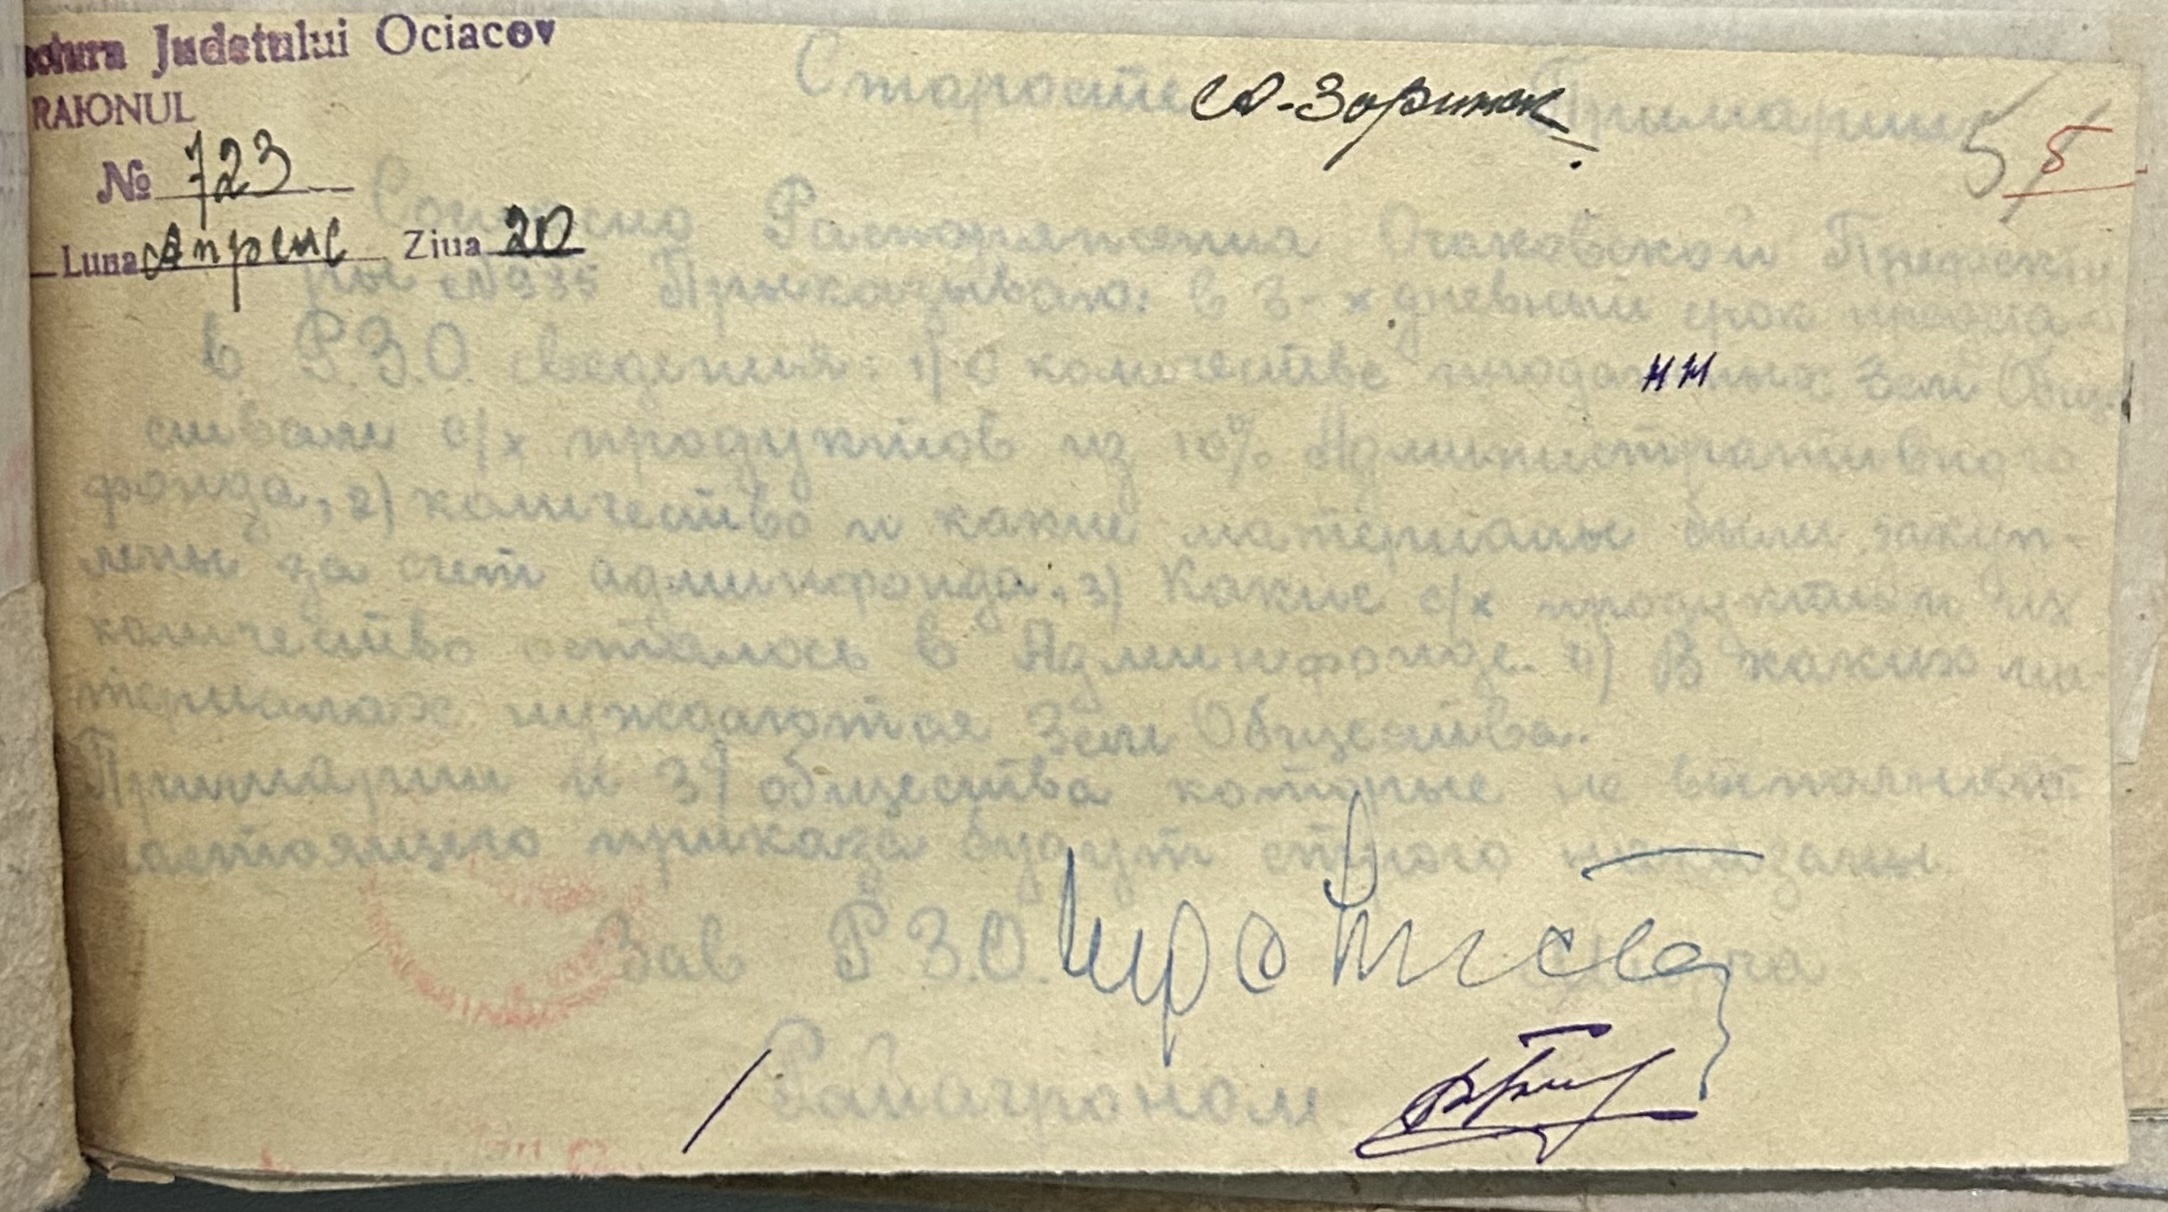 Judetului Ociacov
RAIONUL
№ 723
Luna Апрель Ziua 20
Старосте Примарии
5 5
Согласно Распоряжения Очаковской Префекту
ры №935 Приказываю: в 3-х дневный срок предста-
в Р.З.О. сведения: 1) О количестве проданных Зем Обще
ствами с/х продуктов из 10% Административного
фонда, 2) количество и какие материалы были закуп-
лены за счет админфонда. 3) Какие с/х продукты и их
количество осталось в Админфонде. 4) В каких ма-
териалах нуждаются Зем Общества.
Примарии и З/общества которые не выполнят
настоящего приказа будут строго наказаны.
Зав Р.З.О.
Райагроном.